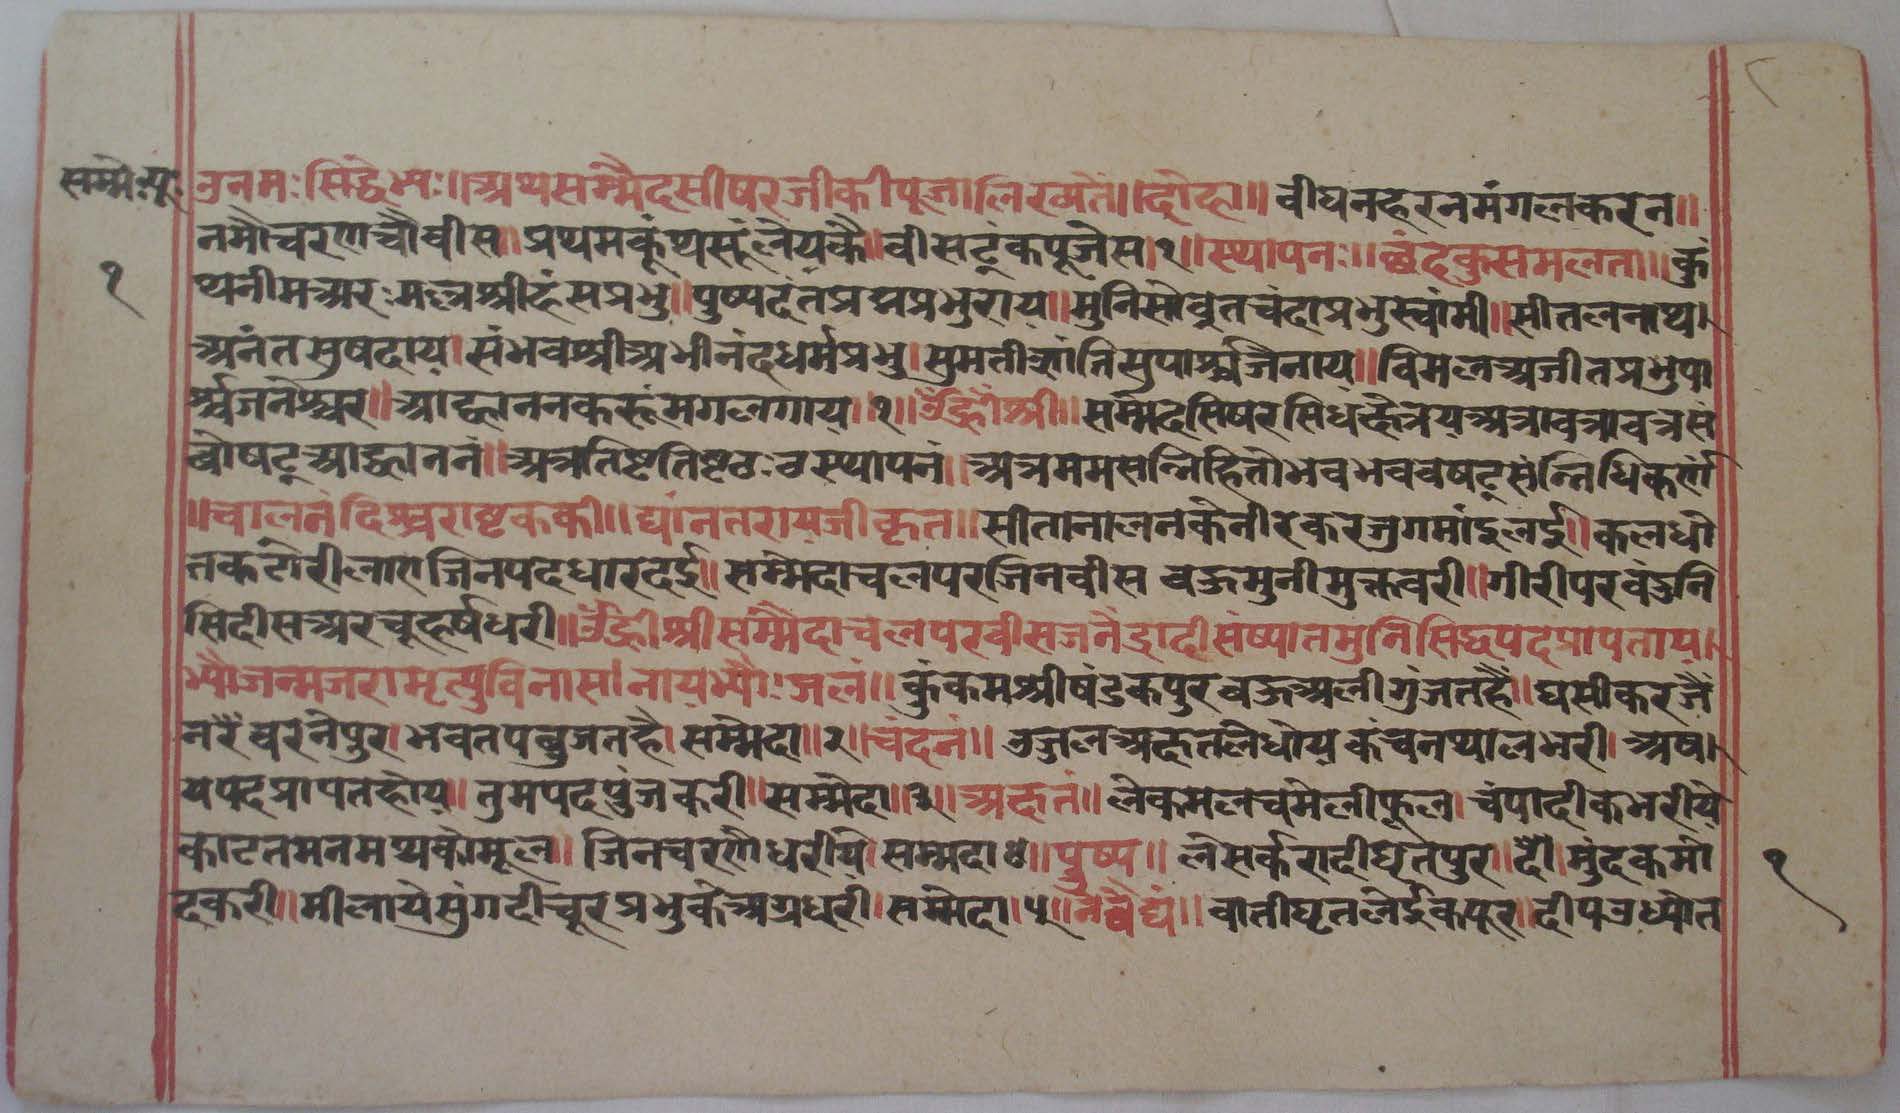 सम्मे॰पू॰
उनमः सिद्धेभ्यः॥ अथसम्मैदसीषरजीकीपूजालिख्यतं॥ दोहा॥ वीघनहरनमंगलकरन॥
नमौचरणचौवीस॥ प्रथमकूंथसूंलेयकै॥ वीसटूंकपूजेस।१॥ स्थापनः॥ छंदकुसमलता॥ कुं
१
थनीमअरःमल्लश्रीहंसप्रभु॥ पुष्पदंतप्रद्मप्रभुराय॥ मुंनिसोवृतचंदाप्रभुस्वांमी॥ सीतलनाथ।
अनंतसुषदाय। संभवश्रीअभीनंदधर्मप्रभु। सुमतीशांतिसुपार्श्वजिनाय॥ विमलअजीतप्रभुपा
र्श्वजनेश्वर॥ आह्वाननकरूंमगलगाय॥१॥ उँह्रीँश्री॥ सम्मेदसिषरसिधक्षेत्रेयअत्रावत्रावत्रसं
वोषट्आह्वाननं॥ अत्रतिष्टतिष्टठःठस्थापनं॥ अत्रममसन्निहितोभवभववषट्संन्निधिकर्णं
॥चालनंदिश्वराष्टककी॥ द्यांनतरायजीकृत॥ सीतानालनकेनीरेकरजुगमांदुलई॥ कलधो
तकटोरीलाणजिनपदधारदई॥ सम्मेदाचलपरजिनवीस वऊमुनीमुक्तवरी॥ गीरीपरवंउनि
सिदीसअरचूहर्षधरी॥ उँह्रीश्रीसंम्मैदाचलपरवीसजनेंद्रादीसंष्यातमुनिसिद्धपदप्रापताय।
भ्योजन्मजरामृत्युविनासांनायभ्योः जलं॥ कुंकमश्रीषंडकपुरवऊअलीगुंजतहैं॥ घसीकरजैं
नरैंश्वरनेपुर। भवतपवुजतहै। सम्मेदा॥२॥ चंदनं॥ उजलअक्षतलेधोय कंचनथालभरी। अष।
यपदप्रापतहोय॥ तुमपदपुंजकरी॥ सम्मेदा॥३॥ अक्षतं॥ लेकमलचमेलीफूल। चंपादीकभरीये
काटनमनमथकोमूल॥ जिनचरणौधरीये। सम्मदा॥४॥ पुष्प॥ लेसर्करादीघृतपुर॥ दौ। मुंदकमो
दकरी॥ मीलायेसुंगदीचूरप्रभुकेअग्रधरी। सम्मेदा॥५॥ नैवैद्यं॥ वातीघृतलेईकपूर॥ दीपउध्योत
१